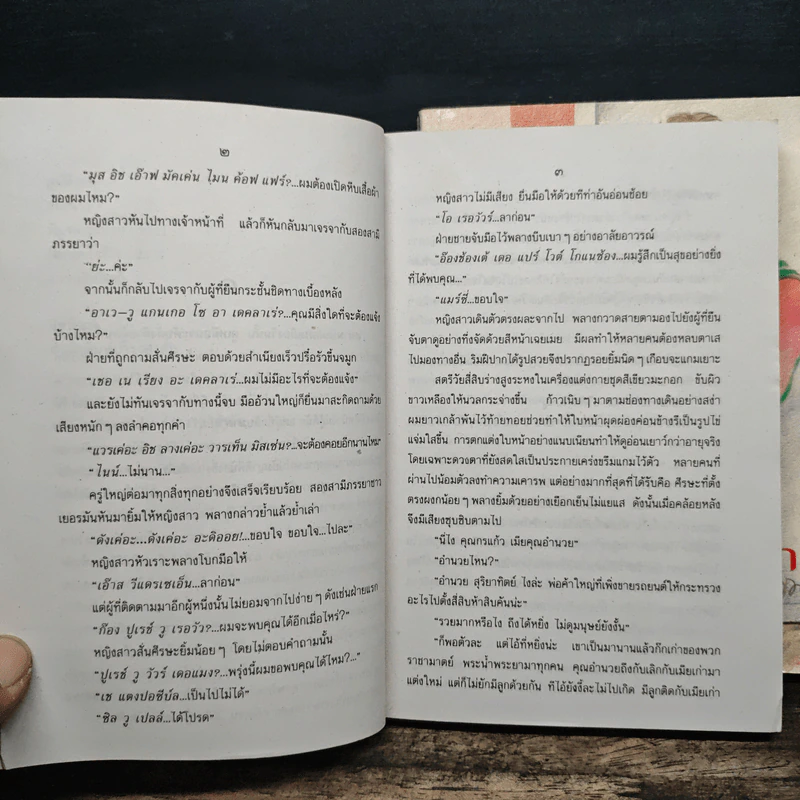 ๒
"มุส อิช เอ๊าฟ มัคเค่น ไมน ค้อฟ แฟร์?...ผมต้องเปิดหีบเสื้อผ้า
ของผมไหม?"
หญิงสาวหันไปทางเจ้าหน้าที่ แล้วก็หันกลับมาเจรจากับสองสามี
ภรรยาว่า
"ย่ะ...ค่ะ"
จากนั้นก็กลับไปเจรจากับผู้ที่ยืนกระชั้นชิดทางเบื้องหลัง
"อาเว–วู แกนเกอ โช อา เดคลาเร่?...คุณมีสิ่งใดที่จะต้องแจ้ง
บ้างไหม?"
ฝ่ายที่ถูกถามสั่นศีรษะ ตอบด้วยสำเนียงเร็วปรื๋อรัวขึ้นจมูก
"เชอ เน เรียง อะ เดคลาเร่...ผมไม่มีอะไรที่จะต้องแจ้ง"
และยังไม่ทันเจรจากับทางนี้จบ มีอ้วนใหญ่ก็ยื่นมาสะกิดถามด้วย
เสียงหนัก ๆ ลงลำคอทุกคำ
"แวรเค่อะ อิช ลางเค่อะ วารเท็น มิสเซ่น?...จะต้องคอยอีกนานไหม"
"ไนน์...ไม่นาน..."
ครู่ใหญ่ต่อมาทุกสิ่งทุกอย่างจึงเสร็จเรียบร้อย สองสามีภรรยาชาว
เยอรมันหันมายิ้มให้หญิงสาว พลางกล่าวย้ำแล้วย้ำเล่า
"ดังเค่อะ...ดังเค่อะ อะดิออย!...ขอบใจ ขอบใจ...ไปละ"
หญิงสาวหัวเราะพลางโบกมือให้
"เอ๊าส วีแดรเซเอิ่น...ลาก่อน"
แต่ผู้ที่ติดตามมาอีกผู้หนึ่งนั้นไม่ยอมจากไปง่าย ๆ ดังเช่นฝ่ายแรก
"ก๊อง ปูเรช์ วู เรอวัว?...ผมจะพบคุณได้อีกเมื่อไหร่?"
หญิงสาวสั่นศีรษะยิ้มน้อย ๆ โดยไม่ตอบคำถามนั้น
"ปูเรช์ วู วัวร์ เดอแมง?...พรุ่งนี้ผมขอพบคุณได้ไหม?..."
"เช แตงปอซีบัล...เป็นไปไม่ได้"
"ซิล วู เปลล์...ได้โปรด"
๓
หญิงสาวไม่มีเสียง ยื่นมือให้ด้วยทีท่าอันอ่อนช้อย
"โอ เรอวัวร์...ลาก่อน"
ฝ่ายชายจับมือไว้พลางบีบเบา ๆ อย่างอาลัยอาวรณ์
"อ๊องช้องเต้ เดอ แปร์ โวต์ โกแนซ้อง...ผมรู้สึกเป็นสุขอย่างยิ่ง
ที่ได้พบคุณ..."
"แมร์ซี่...ขอบใจ"
หญิงสาวเดินตัวตรงผละจากไป พลางกวาดสายตามองไปยังผู้ที่ยืน
จับตาดูอย่างทึ่งจัดด้วยสีหน้าเฉยเมย มีผลทำให้หลายคนต้องหลบตาเส
ไปมองทางอื่น ริมฝีปากได้รูปสวยจึงปรากฏรอยยิ้มนิด ๆ เกือบจะแกมเยาะ
สตรีวัยสี่สิบร่างสูงระหงในเครื่องแต่งกายชุดสีเขียวมะกอก ขับผิว
ขาวเหลืองให้นวลกระจ่างขึ้น ก้าวเนิบ ๆ มาตามช่องทางเดินอย่างสง่า
ผมยาวเกล้าพันไว้ท้ายทอยช่วยทำให้ใบหน้าผุดผ่องค่อนข้างรีเป็นรูปไข่
แจ่มใสขึ้น การตกแต่งใบหน้าอย่างแนบเนียนทำให้ดูอ่อนเยาว์กว่าอายุจริง
โดยเฉพาะดวงตาที่ยังสดใสเป็นประกายเคร่งขรึมแกมไว้ตัว หลายคนที่
ผ่านไปน้อมตัวลงทำความเคารพ แต่อย่างมากที่สุดที่ได้รับคือ ศีรษะที่ตั้ง
ตรงผงกน้อย ๆ พลางยิ้มด้วยอย่างเยือกเย็นไม่แยแส ดังนั้นเมื่อคล้อยหลัง
จึงมีเสียงซุบซิบตามไป
"นี่ไง คุณกรแก้ว เมียคุณอำนวย"
"อำนวยไหน?"
"อำนวย สุริยาทิตย์ ไงล่ะ พ่อค้าใหญ่ที่เพิ่งขายรถยนต์ให้กระทรวง
อะไรไปตั้งสี่สิบห้าสิบคันน่ะ"
"รวยมากหรือไง ถึงได้หยิ่ง ไม่ดูมนุษย์ยังงั้น"
"ก็พอตัวละ แต่ไอ้ที่หยิ่งน่ะ เขาเป็นมานานแล้วก๊กเก่าของพวก
ราชามาตย์ พระน้ำพระยามาทุกคน คุณอำนวยถึงกับเลิกกับเมียเก่ามา
แต่งใหม่ แต่ก็ไม่ยักมีลูกด้วยกัน ทีไอ้ยังงี้ละไม่ไปเกิด มีลูกติดกับเมียเก่า